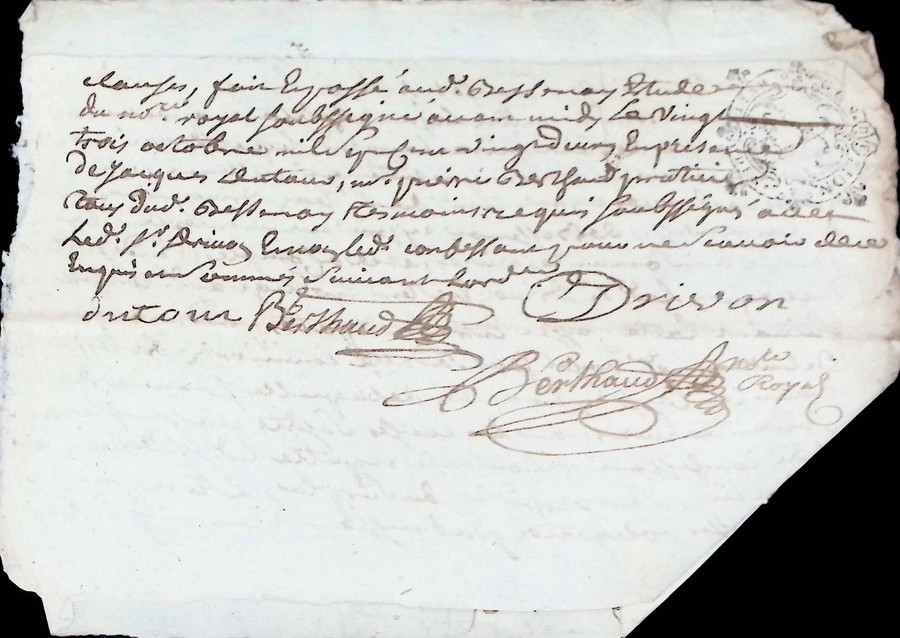 clauses, fait et passé aud. Bessenay Etude
du no.re royal soubssigné avant midy le vingt
trois octobre mil sept cent vingt deux en presence
de Jacques dutour, me pierre Berthaud praticien
tous dud. Bessenay tesmoins requis soubssignés avec
led. Sr. Drivon Et non led. confessant pour ne scavoir de ce
Enquis et sommés suivant lord.ce
Drivon
dutour Berthaud
Berthaud nore
Royal